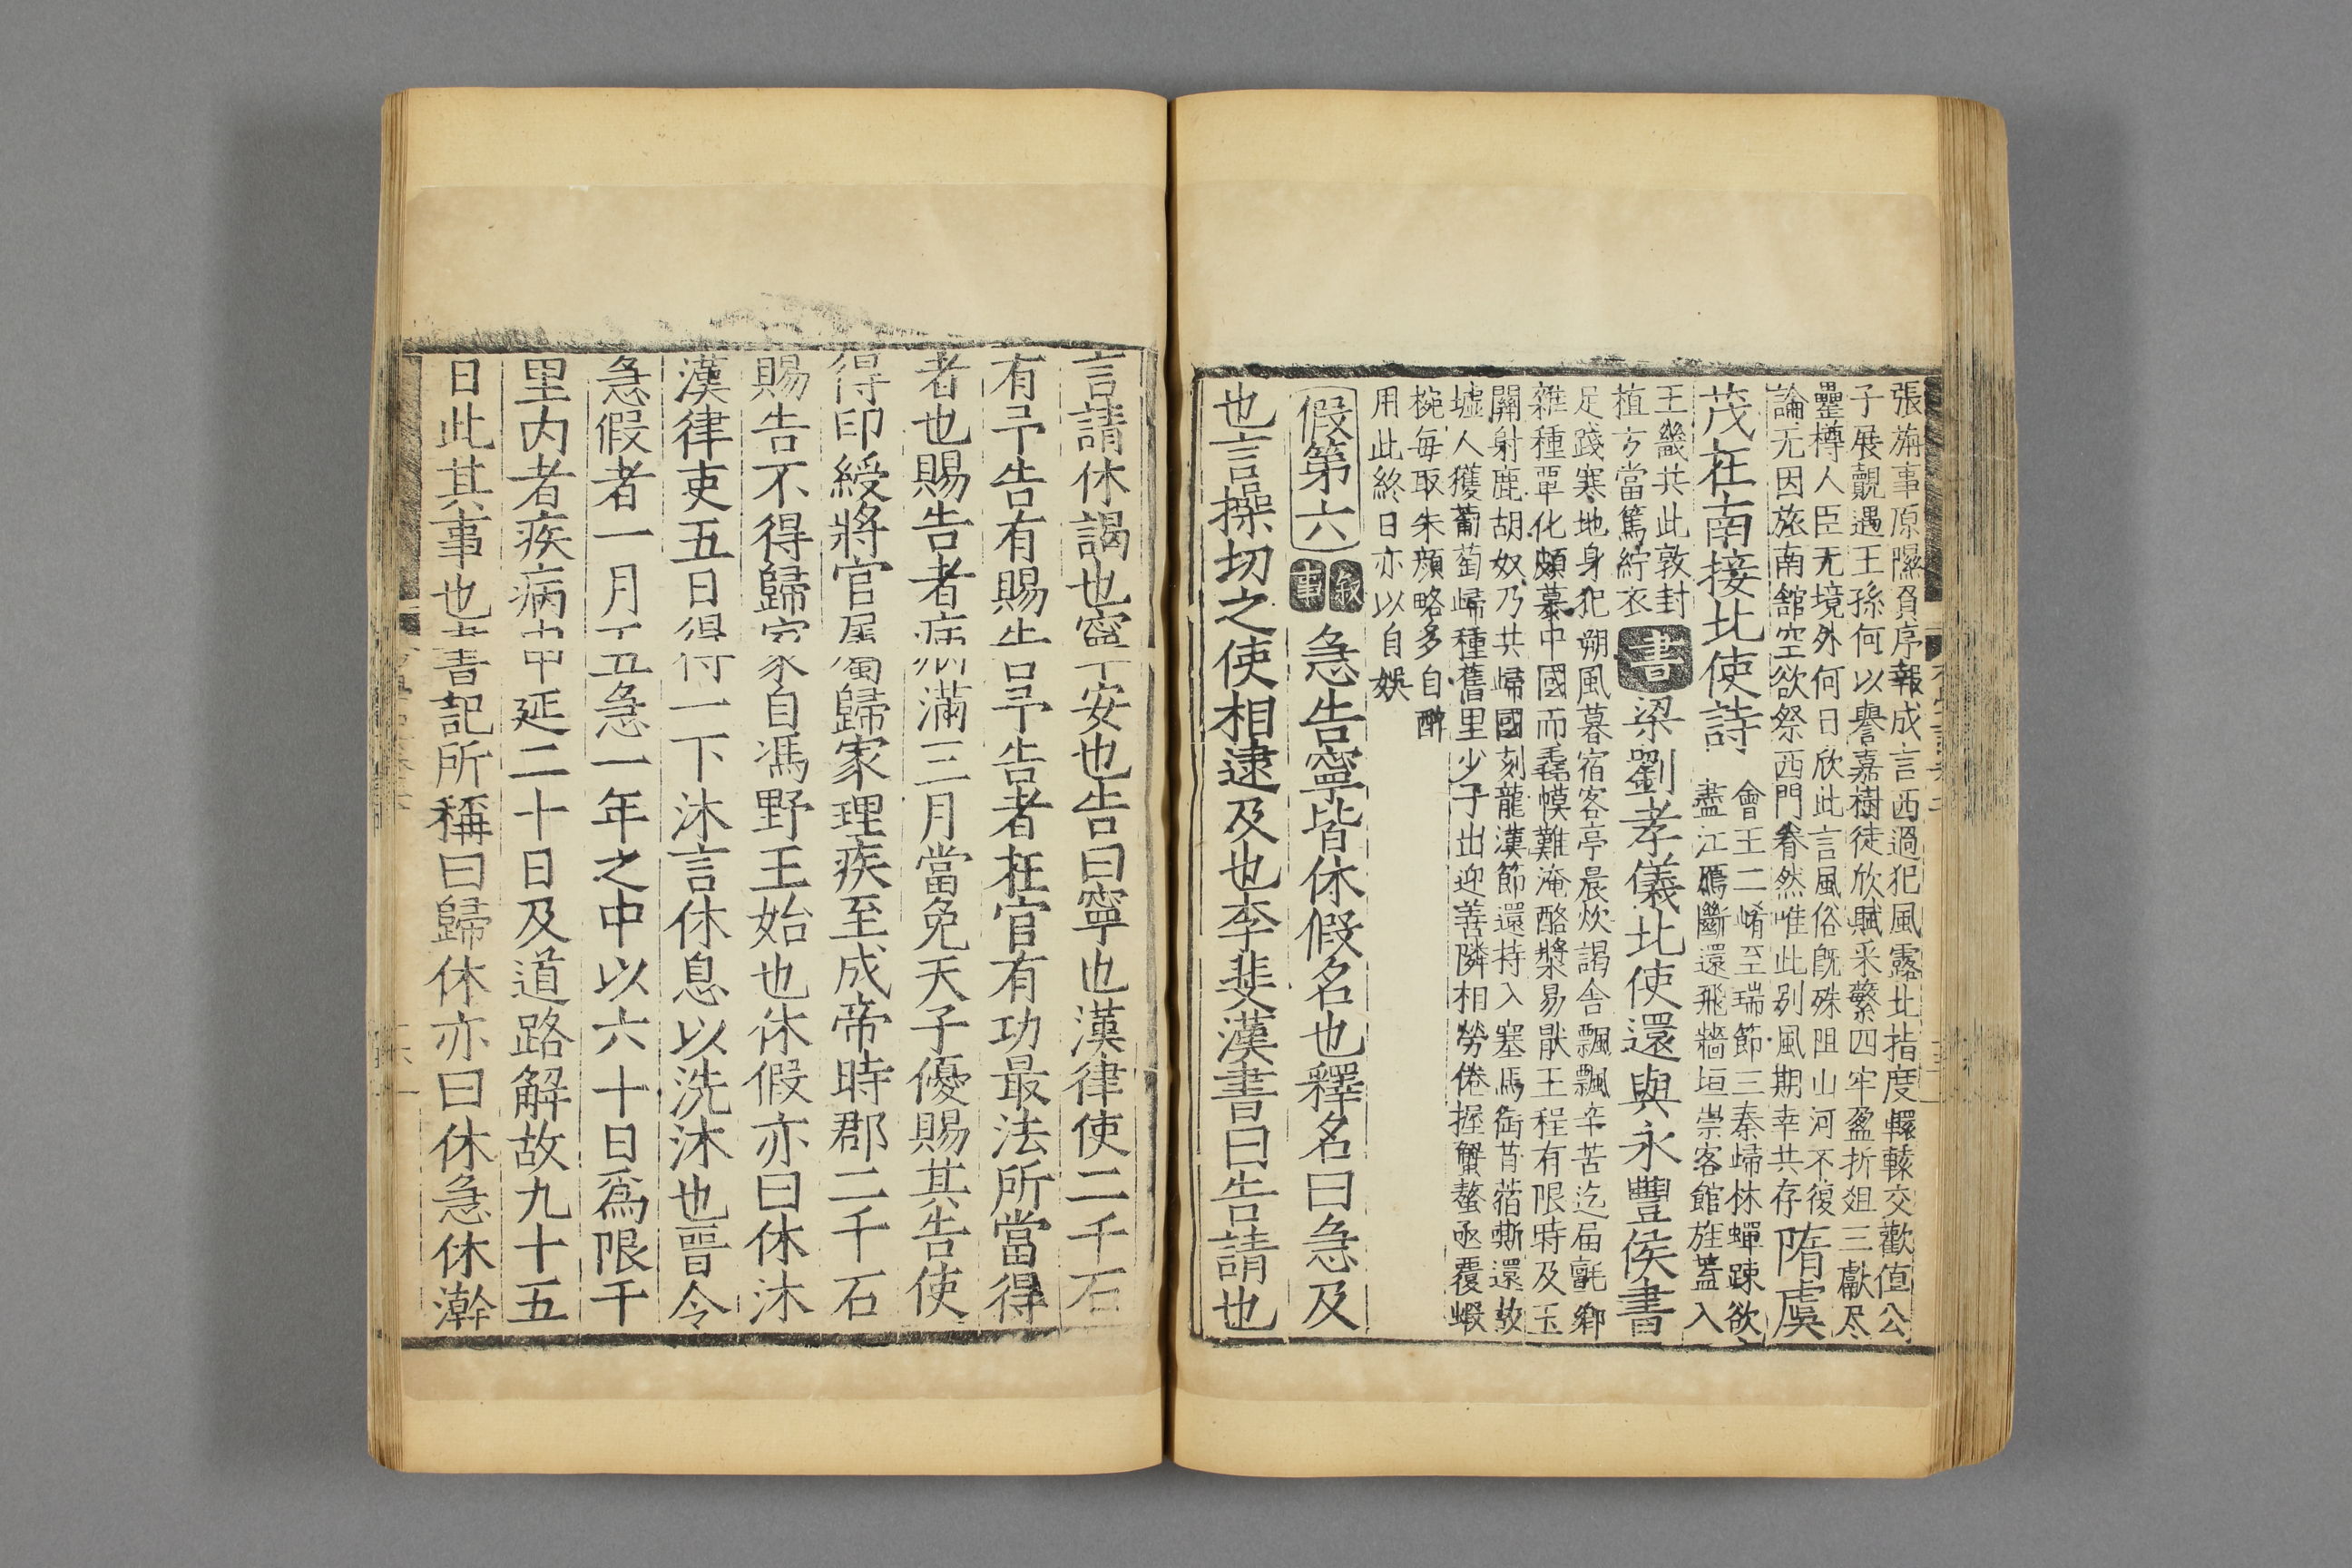 張旃事原隰負序報成言西過犯風露北指度轘轅交歡值公
子展覿遇王孫何以譽嘉樹徒欣賦采蘩四牢盈折俎三獻尽
罍樽人臣无境外何日欣此言風俗旣殊阻山河不復
論无因旅南舘空欲祭西門眷然唯此别風期幸共存
隋虞
茂在南接北使詩
會王二崤至瑞節三秦歸林蟬踈欲
盡江鴈斷還飛牆垣崇客館旌蓋入
王畿共此敦封
植方當篤紵衣
書
梁劉孝儀北使還與永豐侯書
足踐寒地身犯朔風暮宿客亭晨炊謁舍飄飄辛苦迄届氈鄉
雜種覃化頗慕中國而毳幙難淹酪漿易猒王程有限時及玉
關射鹿胡奴乃共歸國刻龍漢節還持入塞馬銜苜蓿嘶還故
墟人獲蒲萄歸種舊里少子出迎善隣相勞倦握蟹螯亟覆蝦
椀每取朱顔略多自酔
用此終日亦以自娯
假第六
敘事
急告寧皆休假名也釋名曰急及
也言操切之使相逮及也李斐漢書曰告請也
言請休謁也寧安也告曰寧也漢律使二千石
有予告有賜告予告者在官有功最法所當得
者也賜告者病滿三月當免天子優賜其告使
得印綬將官属歸家理疾至成帝時郡二千石
賜告不得歸家自馮野王始也休假亦曰休沐
漢律吏五日得一下沐言休息以洗沐也晉令
急假者一月五急一年之中以六十日爲限千
里内者疾病申延二十日及道路解故九十五
日此其事也書記所稱曰歸休亦曰休急休澣